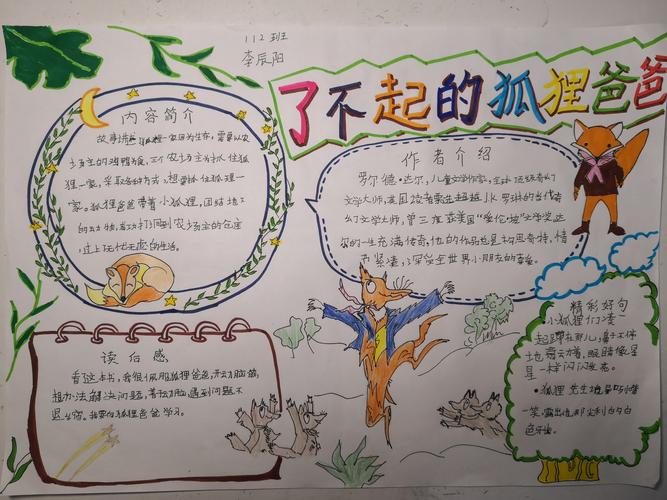 112班
李辰阳
了不起的狐狸爸爸
内容简介
故事讲 狐狸一家因为生存,需要从农
场主的鸡鸭为食,三个农场主为抓住狐
狸一家,采取各种方式,想要抓住狐狸一
家。狐狸爸爸带着小狐狸,团结地下
的动物,成功打洞到农场主的仓库
,过上无忧无虑的生活。
作者介绍
罗尔德·达尔,儿童文学作家,
文学大师,英国读者票选超越J.K.罗琳的当代奇
幻文学大师,曾三度获美国“爱伦·坡”文学奖,达
尔的一生充满传奇,他的作品也是构思奇特,情
节紧凑,深受全世界小朋友的喜爱。
读后感
看这本书,我很佩服狐狸爸爸,开动脑筋,
想办法解决问题,善于动脑,遇到问题不
退缩。我要向狐狸爸爸学习。
精彩好句
小狐狸们凑
起蹲在那儿,鼻子不停
地耸动着,眼睛像星
星一样闪闪发亮。
狐狸先生 冷
一笑,露出他那尖利的白
色牙齿。